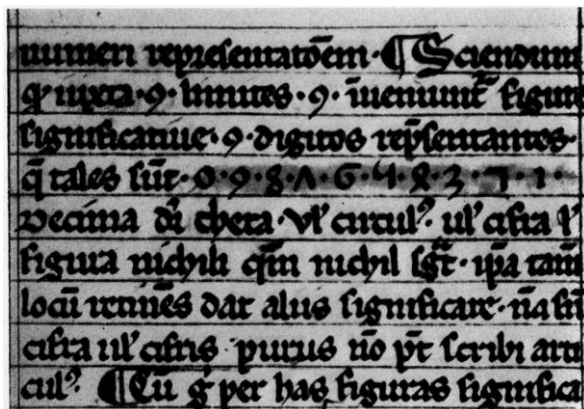 numeri repſentatōem · ¶ Sciendum
ꝙ iuxta · 9 · limites · 9 · īueniunt᷑ figur
ſignificatiue · 9 · digitos rep̄ſentantes ·
q̄ tales ſūt · 0 · 9 · 8 · 7 · 6 · 5 · 4 · 3 · 2 · 1 ·
Decima dr̄ theca · vl̓ circul᷒ · ul̓ cifra l̓
figura nichili qm̄ nichil ſḡt · ip̄a tam̄
locū tenēs dat aliis ſignificare · nā ſn̄
cifra ul̓ cifris purus nō pt̄ ſcribi arti
cul᷒ · ¶ Cū g̓ per has figuras ſignifica